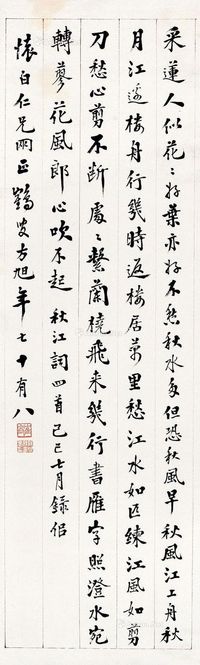 采蓮人似花〻好葉亦好不愁秋水多但恐秋風早秋風江上舟秋
月江邊樓舟行幾時返樓居萬里愁江水如匹練江風如剪
刀愁心剪不斷處〻繫蘭橈飛来幾行書雁字照澄水宛
轉蓼花風郎心吹不起 秋江詞四首己巳七月錄
懷白仁兄哂正鶴叟方旭年七十有八